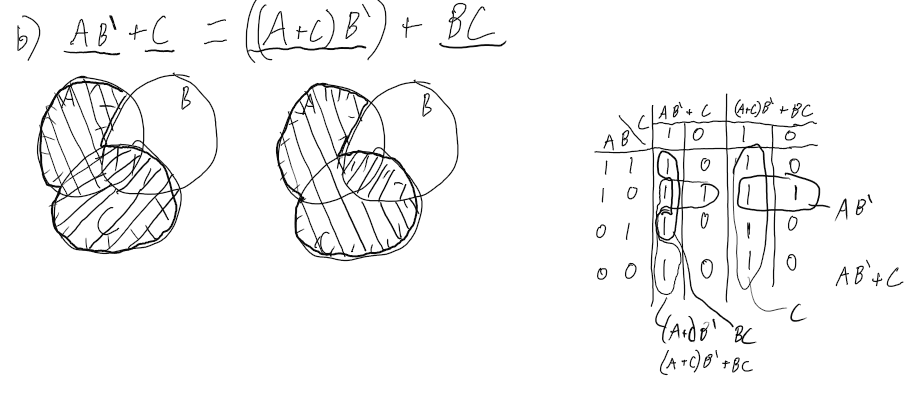 b) AB' + C = ((A+C)B') + BC
A B
C
A B
C
C AB' + C (A+C)B' + BC
A B 1 0 1 0
1 1 1 0 1 0
1 0 1 1 1 1
AB'
0 1 1 0 1 0
0 0 1 0 1 0
AB'+C
C
(A+C)B' BC
(A+C)B'+BC